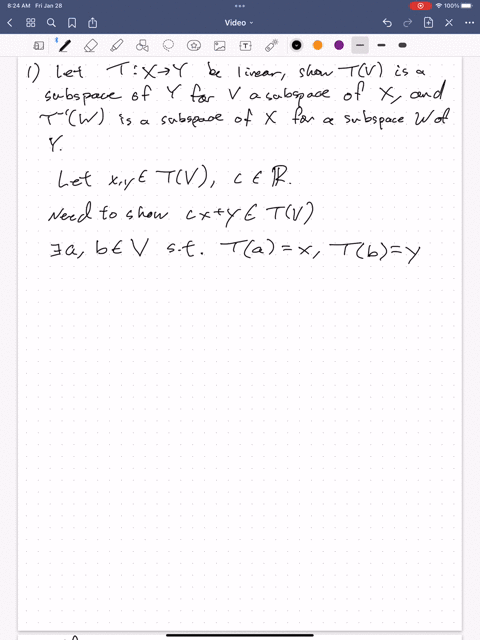 8:24 AM Fri Jan 28
100%
Video
1) Let T: X→Y be linear, show T(V) is a
subspace of Y for V a subspace of X, and
T⁻¹(W) is a subspace of X for a subspace W of
Y.
Let x,y ∈ T(V), c ∈ ℝ.
Need to show cx+y ∈ T(V)
∃a, b ∈ V s.t. T(a) = x, T(b) = y